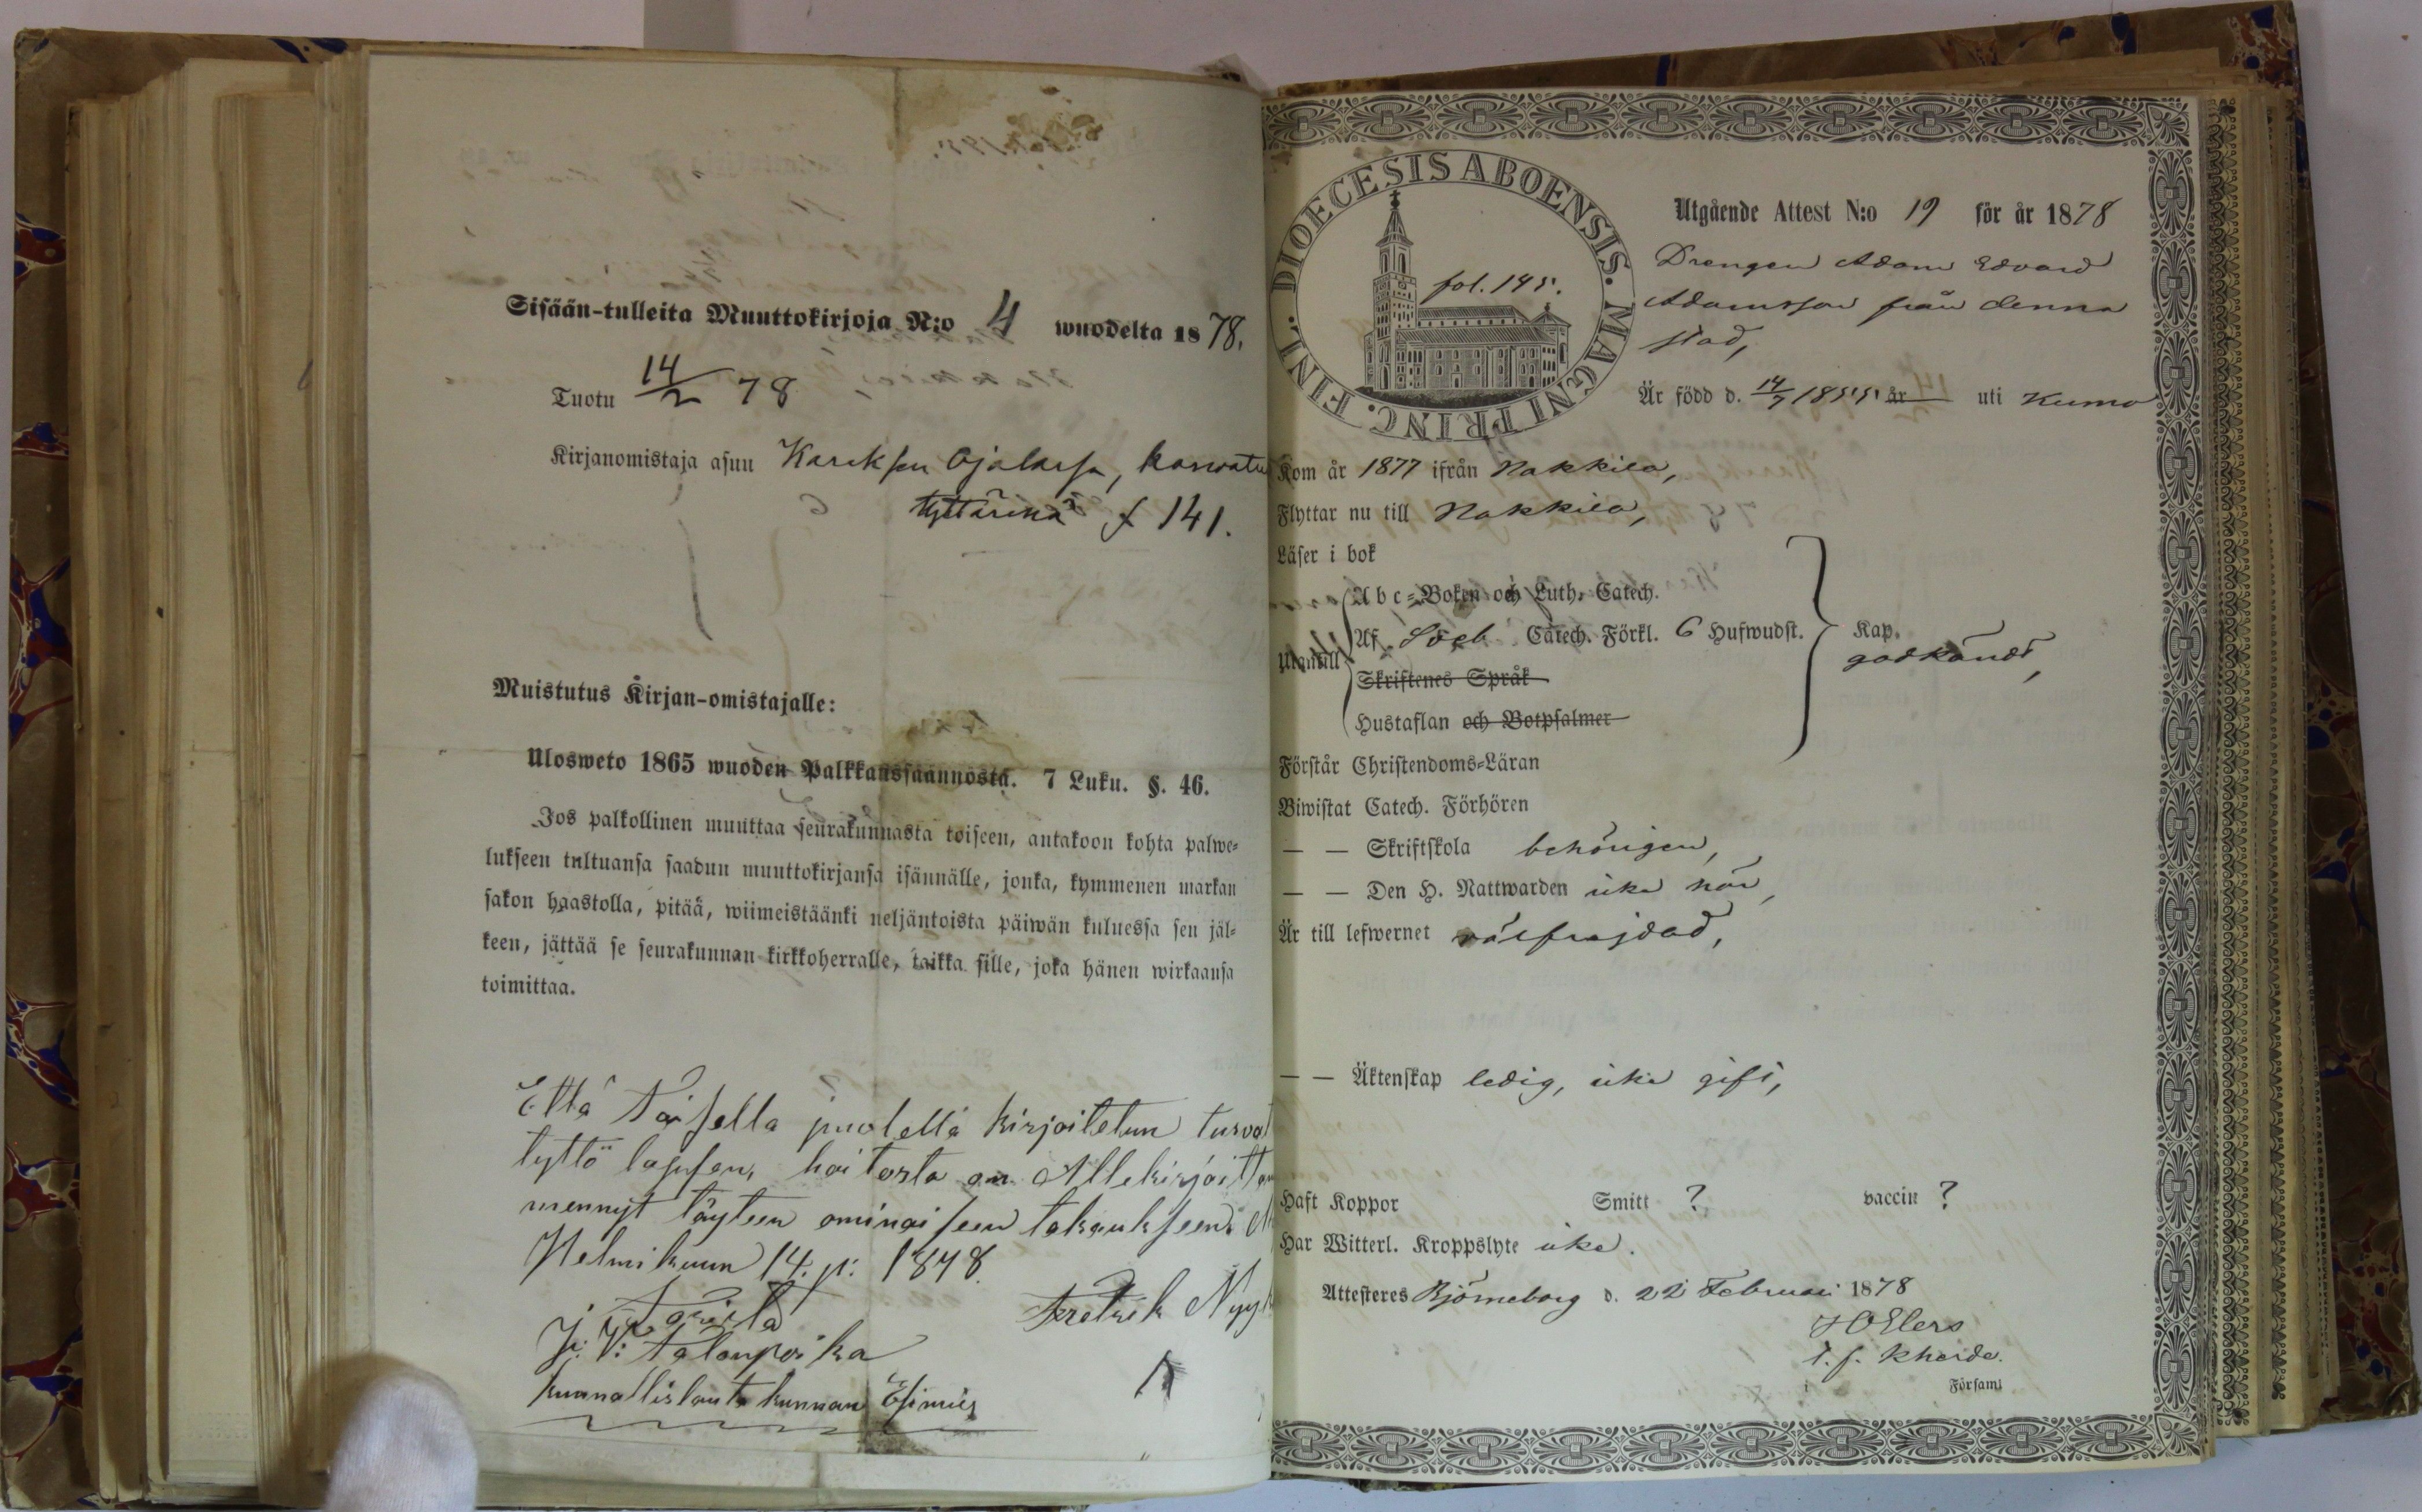 Sisään-tulleita Muuttokirjoja N:o 4 wuodelta 1878.
Tuotu 14/2 78
Kirjanomistaja asuu Kareksen Ojalassa, kasvatu
tyttärenä f 141.
Muistutus Kirjan-omistajalle:
Ulosweto 1865 wuoden Palkkaussäännöstä. 7 Luku. §. 46.
Jos palkollinen muuttaa seurakunnasta toiseen, antakoon kohta palwe-
lukseen tultuansa saadun muuttokirjansa isännälle, jonka, kymmenen markan
sakon haastolla, pitää, wiimeistäänki neljäntoista päiwän kuluessa sen jäl-
keen, jättää se seurakunnan kirkkoherralle, taikka sille, joka hänen wirkaansa
toimittaa.
Että toisella puolella kirjoitetun turvat
tyttö lapsen, hoitosta on Allekirjoittan
mennyt täyteen ominaiseen takaukseen.
Helmikuun 14. p: 1878
Fretrik Nyy
J: V: Talonpoika
kunnallislautakunnan Esimies
DIOECESIS ABOENSIS. MAGNI PRINC. FINL.
fol. 145.
Utgående Attest N:o 19 för år 1878
Drengen Adam Edvard
Adamsson från denna
stad,
Är född d. 14/7 1855 år uti Kumo
Kom år 1877 ifrån Nakkila,
Flyttar nu till Nakkila,
Läser i bok
Abc-Boken och Luth. Catech.
Utantill Af Sveb. Catech. Förkl. 6 Hufwudst. Kap.
godkändt,
Skriftenes Språk
Hustaflan och Botpsalmer
Förstår Christendoms-Läran
Biwistat Catech. Förhören
— — Skriftskola behörigen,
— — Den H. Nattwarden icke här,
Är till lefwernet välfrejdad,
— — Äktenskap ledig, icke gift,
Haft Koppor Smitt ? vaccin ?
Har Witterl. Kroppslyte icke.
Attesteres Björneborg d. 22 Februari 1878
Elers
t. f. Kherde.
Förs​aml